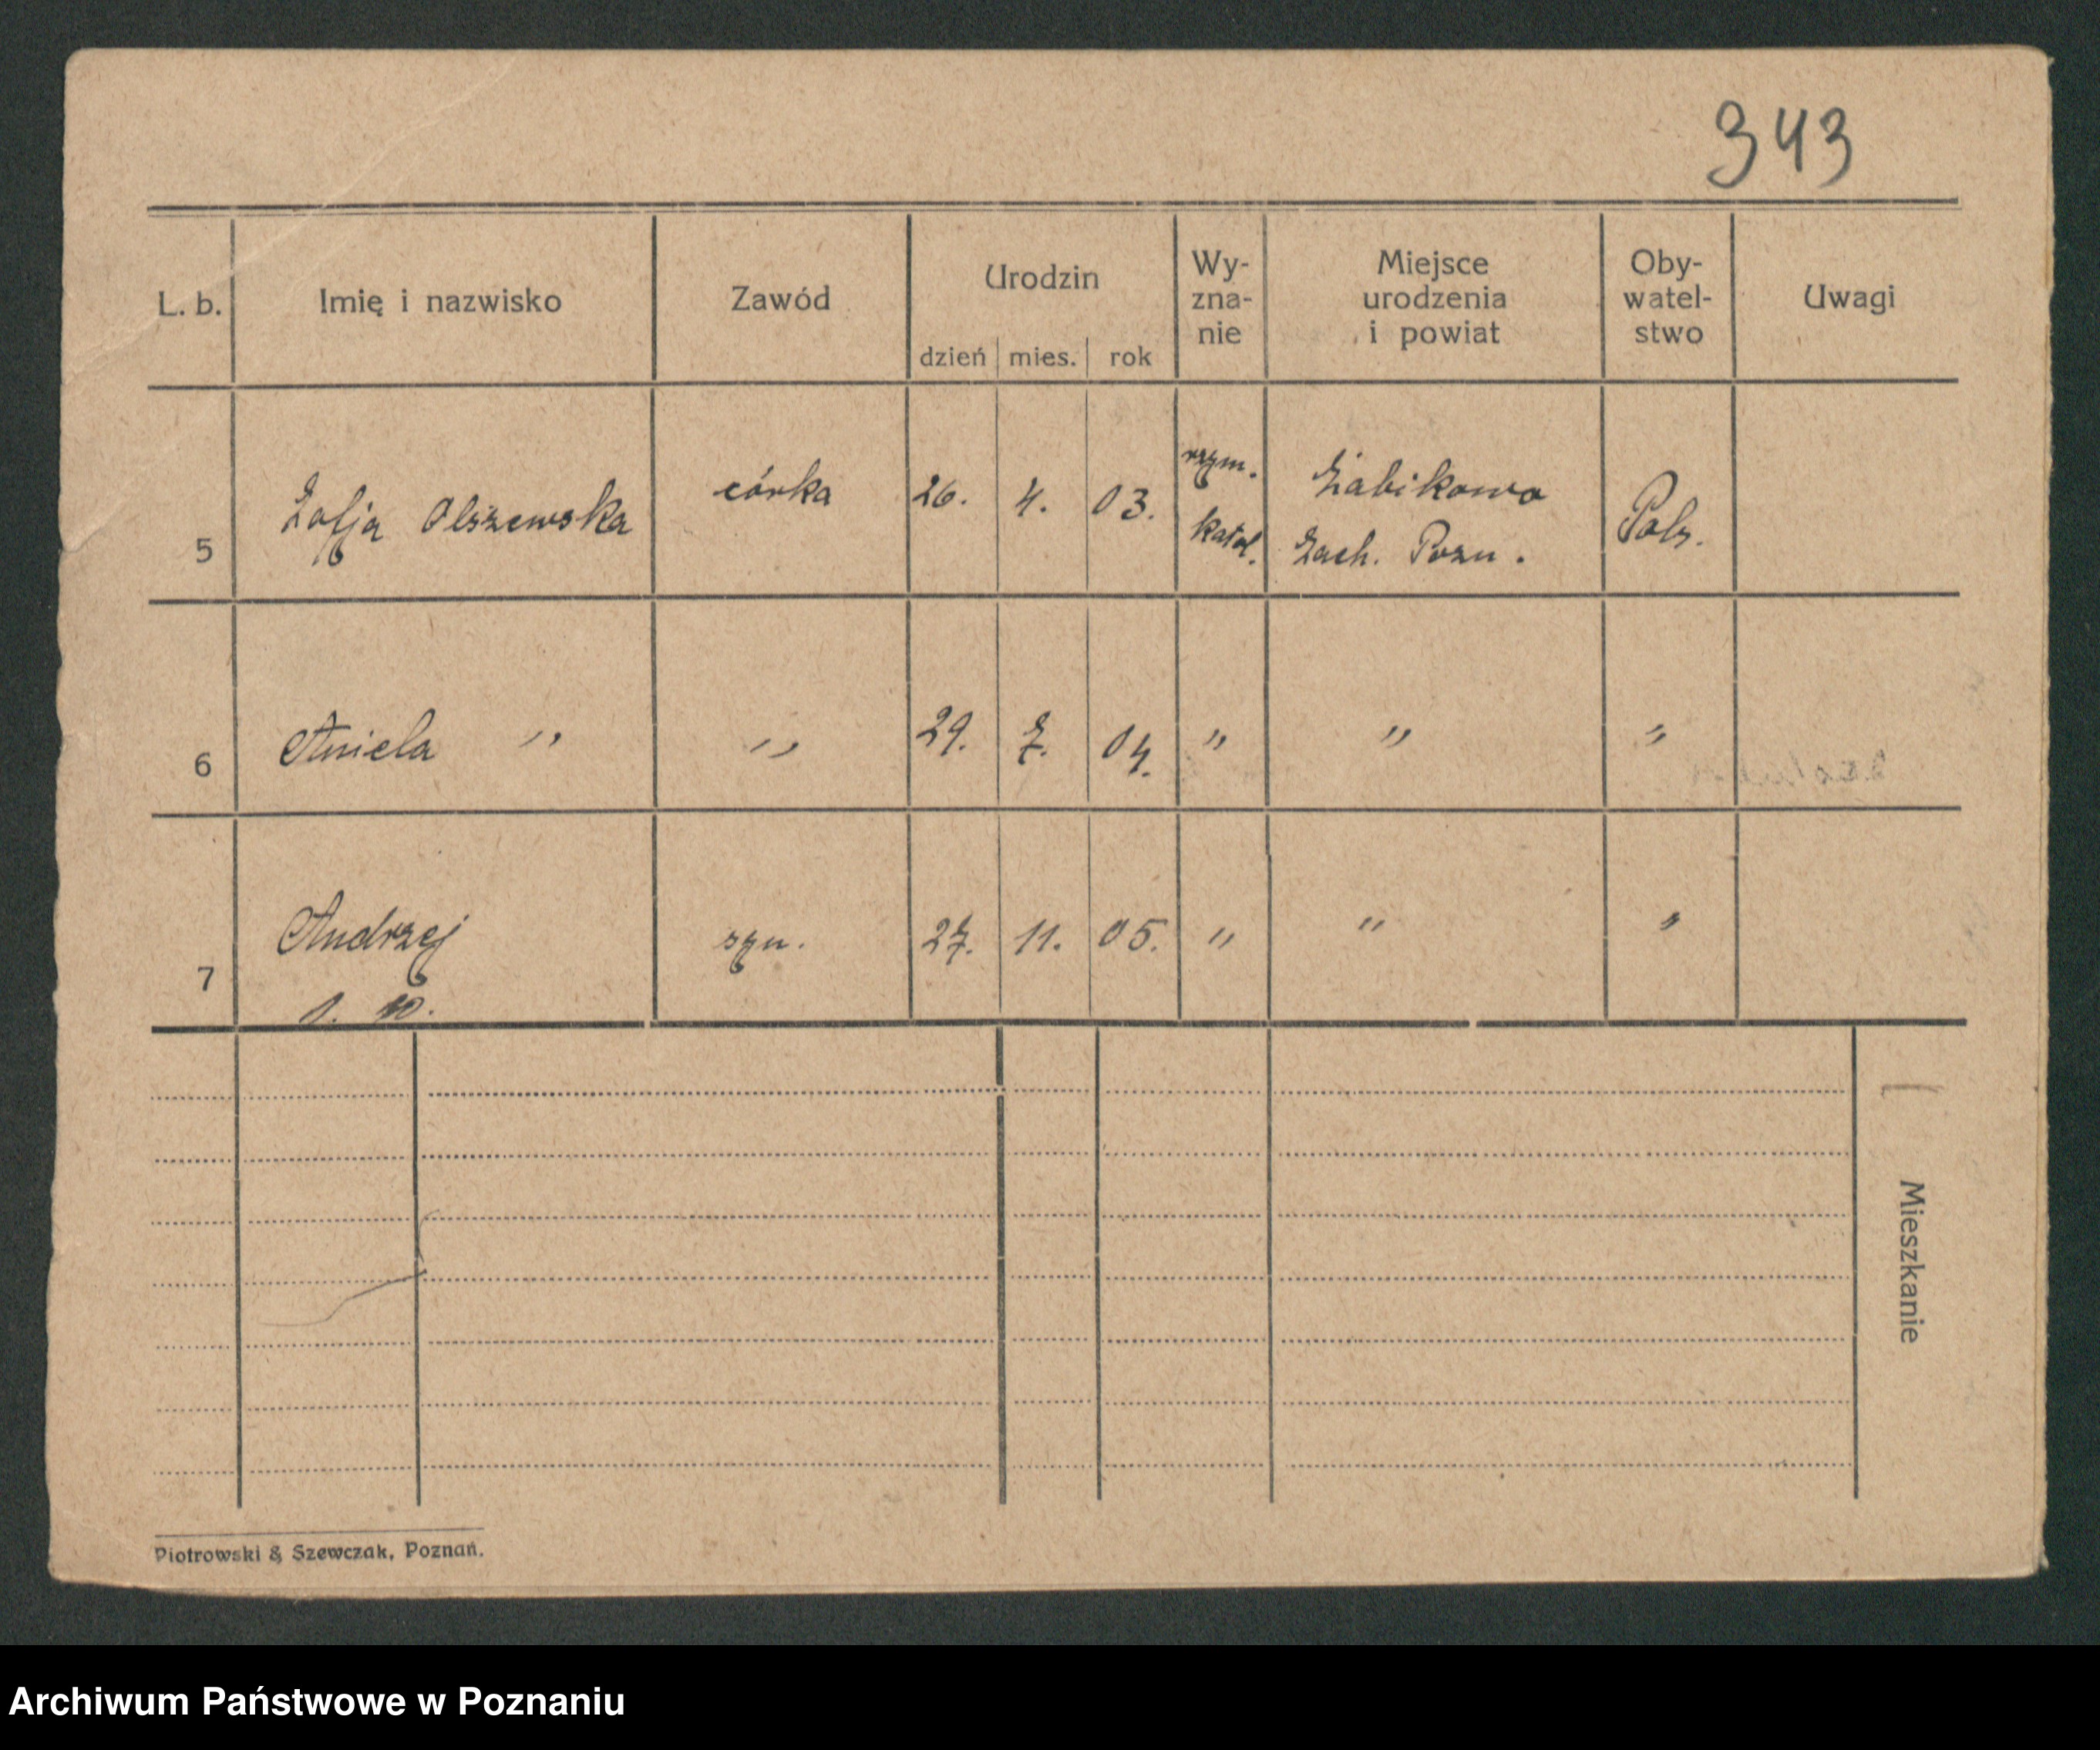 343
L. b. Imię i nazwisko Zawód Urodzin dzień mies. rok Wy-zna-nie Miejsce urodzenia i powiat Oby-watel-stwo Uwagi
5 Zofja Olszewska córka 26. 4. 03. rzym. katol. Żabikowo Zach. Pozn. Pols.
6 Aniela " " 29. 7. 04. " " "
7 Andrzej syn. 27. 11. 05. " " "
Mieszkanie
Piotrowski & Szewczak, Poznań.
Archiwum Państwowe w Poznaniu